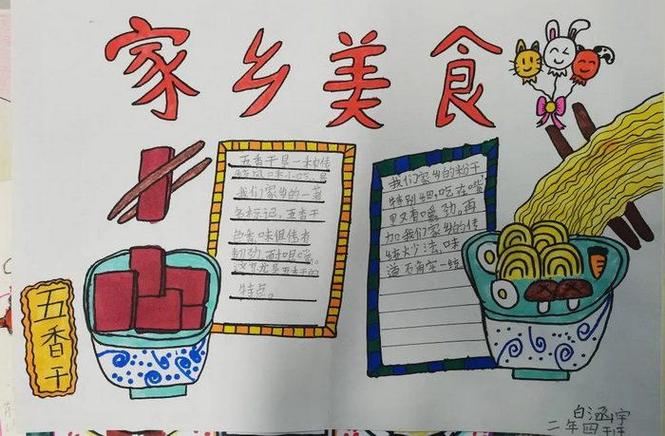 家乡美食
五香干是一种传
统风味小吃，是
我们家乡的一著
名标记，五香干
色香味俱传者
韧劲，耐咀嚼。
这就是五香干的
特点。
我们家乡的粉干，
特别细，吃在嘴
里又有嚼劲。再
加我们家乡的传
统炒法，味
道不再牢一统
五香干
白涵宇
二年四班